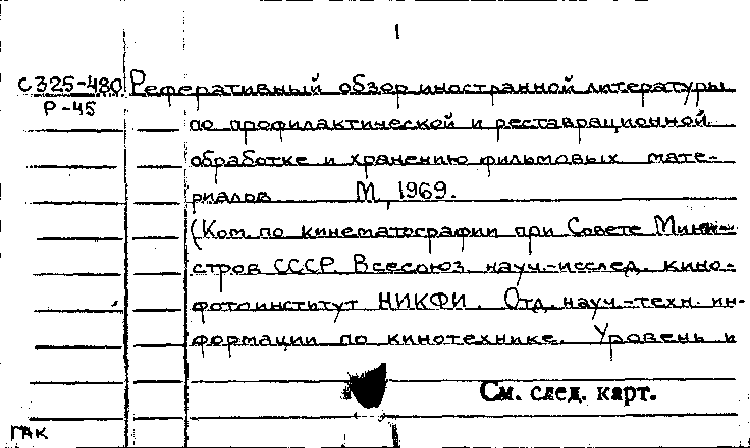 1
С325-480 Реферативный обзор иностранной литературы
Р-45
по профилактической и реставрационной
обработке и хранению фильмовых мате-
риалов М, 1969.
(Ком. по кинематографии при Совете Мини-
стров СССР. Всесоюз. науч.-исслед. кино-
фотоинститут НИКФИ. Отд. науч.-техн. ин-
формации по кинотехнике. Уровень и
См. след. карт.
ГАК